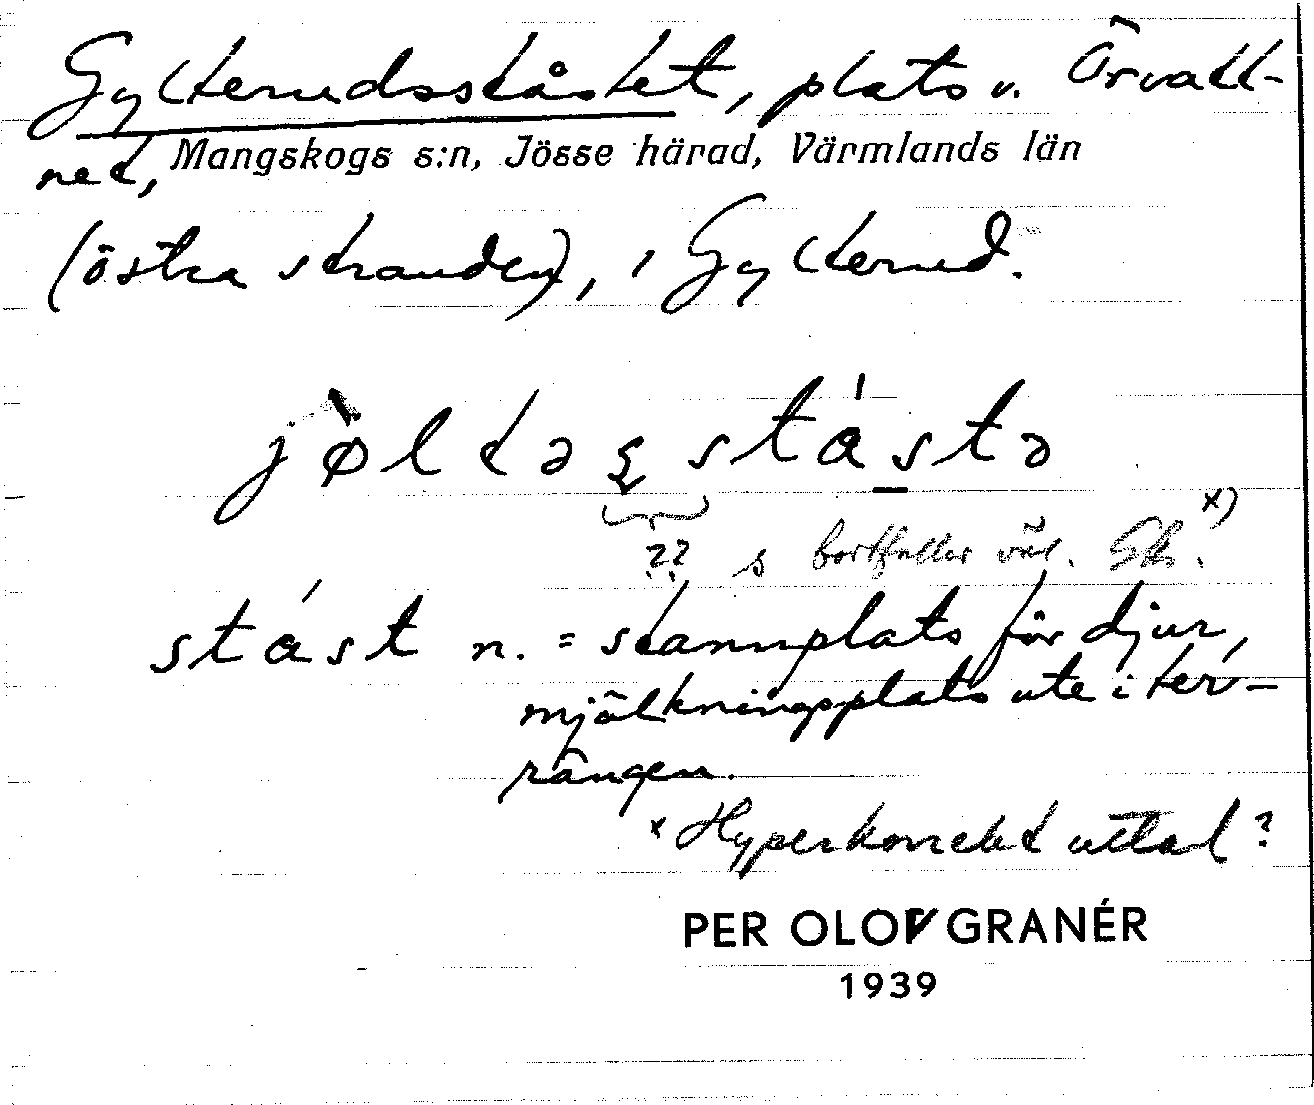 Gylterudsståstet, plats v. Örvatt-
net, Mangskogs s:n, Jösse härad, Värmlands län
(östra stranden), i Gylterud.
jø̀ltəʂstá̱stə
?? s bortfaller väl. x)
stást n. = stannplats för djur,
mjölkningsplats ute i ter-
rängen.
x Hyperkorrekt uttal?
PER OLOV GRANÉR
1939